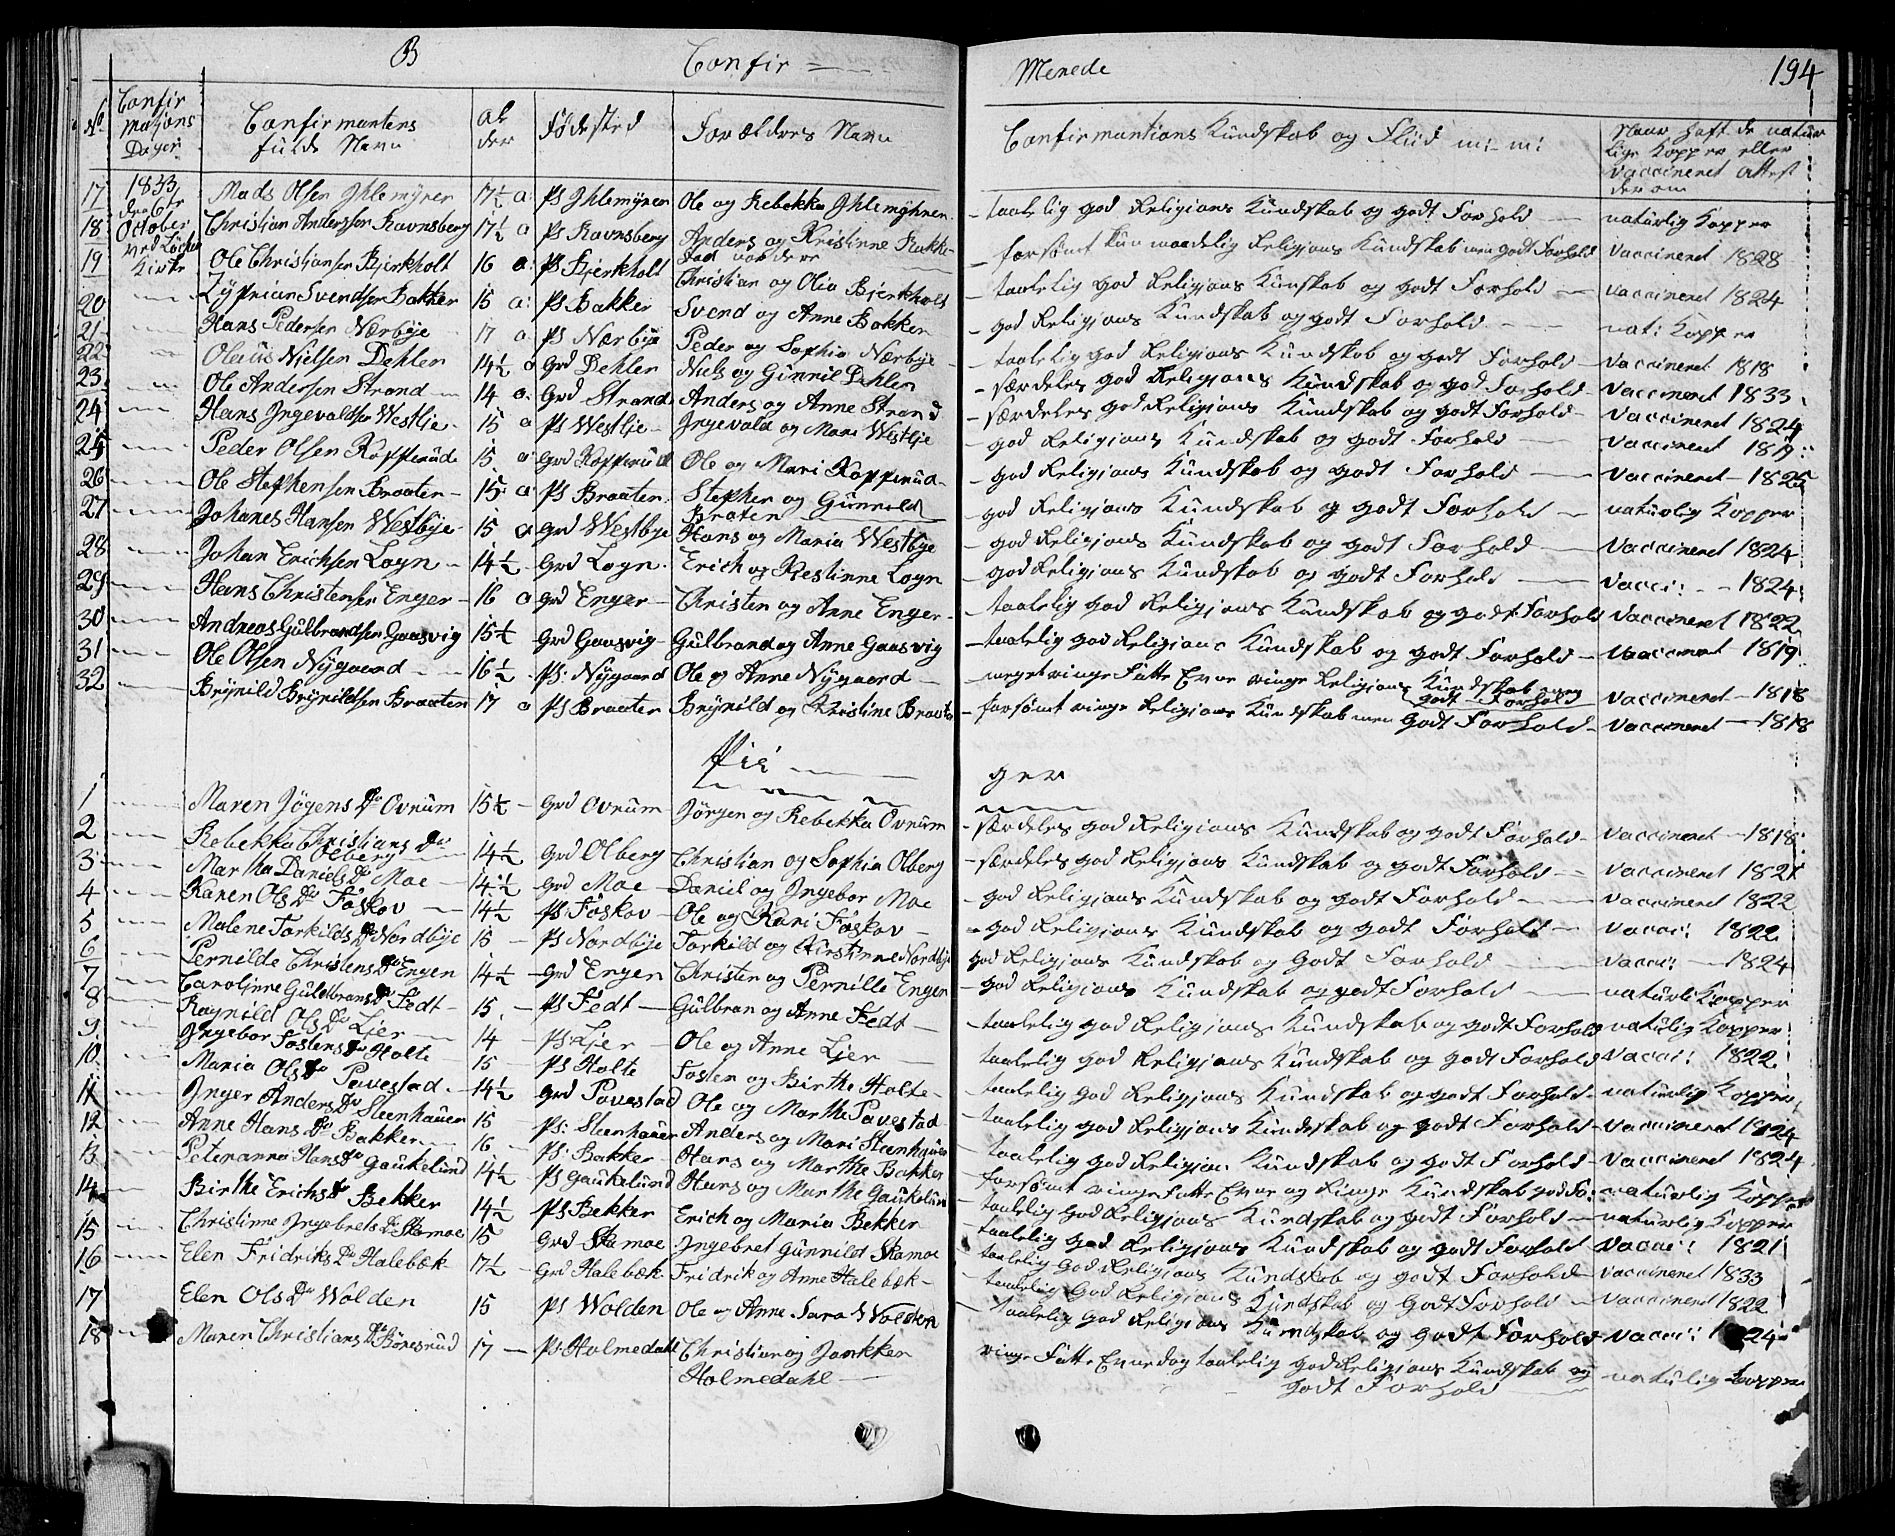 B Confir = Menede 194
No Confir mations Dager | Confirmantens fulde Navn | Al der | Fødested | Forældres Navn | Confirmantians Kundskab og Fliid m: m: | Naar haft de natur lige Kopper eller Vaccineret attest derom
17 1833 den 6te October ved Kirke Mads Olsen Ihlemyrer 17½ a: Ps Ihlemyrer Ole og Rebekka Ihlemyhren - taalelig god Religions Kundskab og godt Forhold — naturlig Kopper
18 Christian Anderssen Ravnsberg 17½ a Ps Ravnsberg Anders og Kristinne - forsømt kun maadelig Religjons Kundskab men godt Forhold Vaccineret 1828
19 Ole Christiansen Bjerkholt 16 a: Ps Bjerkholt Christian og Olia Bjerkholt - taalelig god Religjons Kunskab og godt Forhold — Vaccineret 1824
20 Zyprian Svendsen Bakker 15 a: Ps Bakker Svend og Anne Bakker - god Religjons Kundskab og godt Forhold — nat: Kopper
21 Hans Pedersen Nærbye 17 a Ps Nærbye Peder og Sophia Nærbye - taalelig god Religjons Kundskab og godt Forhold - Vaccineret 1818
22 Oleüs Nielsen Dehlen 14½ a Grd Dehlen Niels og Günnil Dehlen - særdeles god Religjons Kundskab og god Forhold - Vaccineret 1833
23 Ole Andersen Strand 14 a: Grd Strand Anders og Anne Strand - særdeles god Religjons Kundskab og godt Forhold - Vaccineret 1824
24 Hans Ingevaldsen Westlie 15 a Ps Westlje Ingevald og Mari Westlje - god Religjons Kundskab og godt Forhold — Vaccineret 1819
25 Peder Olsen Kopperud 15 a Grd Kopperud Ole og Mari Kopperud - god Religjons Kundskab og godt Forhold — Vaccineret 1825
26 Ole Stephensen Braaten 15 a: Ps Braaten Stephen og Günnild Braten - god Religjons Kundskab og godt Forhold — naturlig Kopper
27 Johanes Hansen Westbye 15 a Grd Westbye Hans og Maria Westbye - god Religjons Kundskab og godt Forhold — Vaccineret 1824
28 Johan Erichsen Logn 14½ Grd Logn Erich og Kestinne Logn - god Religjons Kundskab og godt Forhold — Vacci: — 1824
29 Hans Christensen Enger 16 a Grd Enger Christen og Anne Enger - taalelig god Religjons Kundskab og godt Forhold Vaccineret 1822
30 Andreas Gülbrandsen Gaasvig 15½ Grd Gaasvig Gülbrand og Anne Gaasvig - taalelig god Religjons Kundskab og godt Forhold - Vaccineret 1819
31 Ole Olsen Nygaard 16½ Ps: Nygaard Ole og Anne Nygaard - meget ringe Fatte Evne ringe Religjons Kundskab godt Forhold Vaccineret - 1818
32 Brynild Brynildsen Braaten 17 a Ps Braaten Brynild og Kristine Braaten - forsømt ringe Religjons Kundskab men godt Forhold - Vaccineret — 1818
Pie — ger
1 Maren Jögens Dr Ovrum 15½ - Grd Ovrum Jörgen og Rebekka Ovrum - særdeles god Religjons Kundskab og godt Forhold - Vaccineret - 1818
2 Rebekka Christians Dr Olberg 14½ Grd Olberg Christian og Sophia Olberg - særdeles god Religjons Kundskab og godt Forhold — Vaccineret 1821
3 Martha Daniels Dr Moe 14½ Grd Moe Daniel og Ingebor Moe - god Religjons Kundskab og godt Forhold — Vaccineret 1822
4 Karen Ols Dr Foskov 14½ Ps Foskov Ole og Kari Foskov - god Religjons Kundskab og godt Forhold — Vacci: 1822
5 Malene Torkilds Dr Nordbye 15 - Ps Nordbye Torkild og Kirstinne Nordbye god Religjons Kundskab og Godt Forhold — Vacci: — 1824
6 Pernilde Christens Dr Engen 14½ - Grd Engen Christen og Pernille Engen - god Religjons Kundskab og godt Forhold — naturli Kopper
7 Carolinne Güldbrans Dr Fedt 15 - Ps Fedt Gülbran og Anne Fedt - taalelig god Religjons Kundskab og godt Forhold natülig Kopper
8 Ragnild Ols Dr Ljer 14 - Ps: Ljer Ole og Anne Ljer taalelig god Religjons Kundskab og godt Forhold Vacci: 1822
9 Ingebor Fostens Dr Holte 15 - Ps Holte Fosten og Birthe Holte - taalelig god Religjons Kundskab og godt Forhold - naturlig Kopper
10 Maria Ols Dr Povestad 14½ Grd Povestad Ole og Marthe Povestad - taalelig god Religjons Kundskab og godt Forhold - Vaccineret 1824
11 Inger Anders Dr Steenhauer 15 - Ps: Steenhauer Anders og Mari Steenhauer - taalelig god Religjon Kundskab og godt Forhold - Vaccineret 1824
12 Anne Hans Dr Bakker 16 - Ps: Bakker Hans og Marthe Bakker forsømt ringe Fatte Evne og Ringe Kundskab god Fo: naturlig Kopper
13 Peternanna Hans Dr Gaukelund 14½ Ps Gaukelund Hans og Marthe Gaukelund taalelig god Religjons Kundskab og godt Forhold — naturlig Kopper
14 Birthe Erichs Dr Bekker 14½ Ps Bekker Erich og Maria Bekker taalelig god Religjons Kundskab og godt Forhold Vacci: 1821
15 Christinne Ingebrets Dr Skamoe 15 Grd Skamoe Ingebret Günnild Skamoe taalelig god Religjons Kundskab og godt Forhold Vaccineret 1833
16 Elen Fridriks Dr Halebæk 17½ - Grd Halebæk Fridrik og Anne Halebæk - taalelig God Religjons Kundskab og Godt Forhold - Vaccineret 1822
17 Elen Ols Dr Wolden 15 Ps Wolden Ole og Anne Sara Wolden - taalelig god Religjons Kundskab og godt Forhold Vacci: 1824
18 Maren Christians Dr Börresrud 17 — Ps: Holmedahl Christian og Jankken Holmedahl — ringe Fatte Evne dog taalelig god Religjons Kundskab og godt Forhold — natülig Kopper